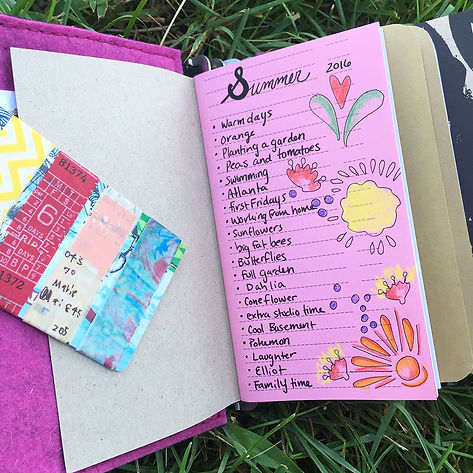 Summer 2016
• Warm days
• Orange
• Planting a garden
Peas and tomatoes
• Swimming
• Atlanta
• First Fridays
• Working from home
• Sunflowers
• big fat bees
• Butterflies
• Full garden
• Dahlia
• Coneflower
• extra studio time
• Cool Basement
• Pokemon
• Laughter
• Elliot
• Family time
81374
6
DAYS
81372
043
70
205